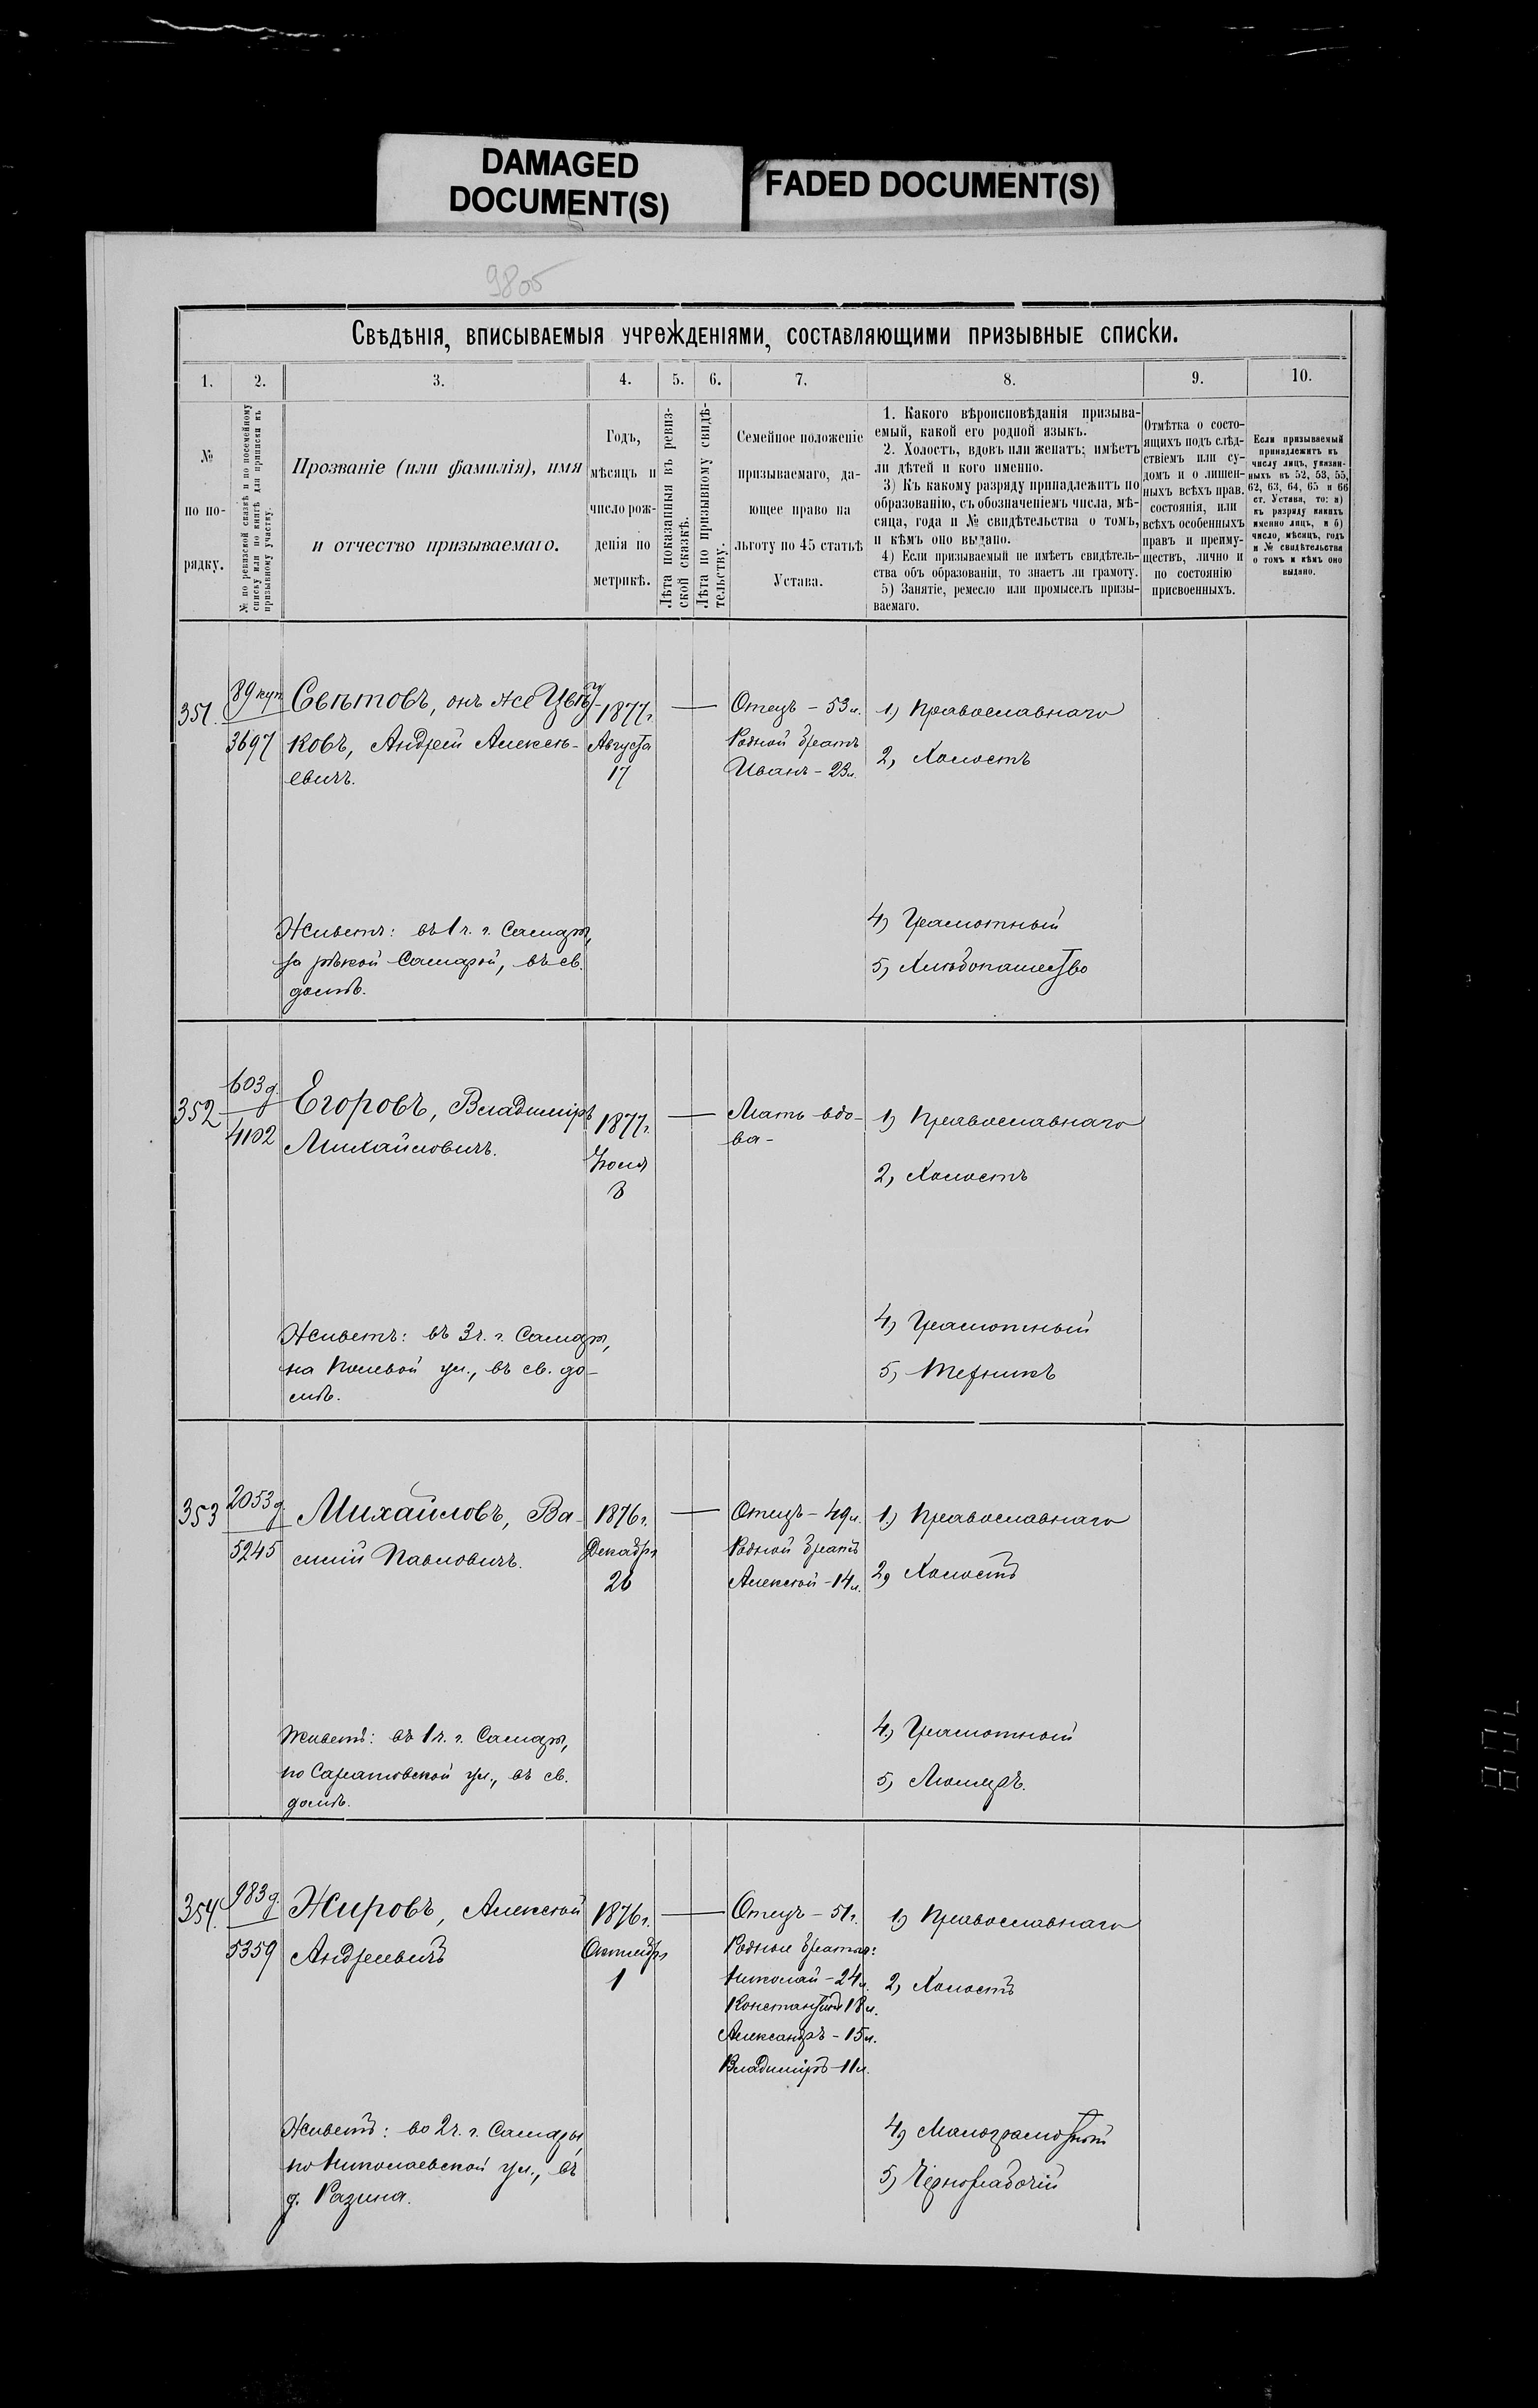 DAMAGED
DOCUMENT(S)
FADED DOCUMENT(S)
9805
Свѣдѣнія, вписываемыя учрежденіями, составляющими призывные списки.
1.
2.
3.
4.
5.
6.
7.
8.
9.
10.
№
по по-
рядку.
№ по ревизской сказкѣ и по посемейному
списку или по книгѣ для приписки къ
призывному участку.
Прозваніе (или фамилія), имя
и отчество призываемаго.
Годъ,
мѣсяцъ и
число рож-
денія по
метрикѣ.
Лѣта показанныя въ ревиз-
ской сказкѣ.
Лѣта по призывному свидѣ-
тельству.
Семейное положеніе
призываемаго, да-
ющее право на
льготу по 45 статьѣ
Устава.
1. Какого вѣроисповѣданія призыва-
емый, какой его родной языкъ.
2. Холостъ, вдовъ или женатъ; имѣетъ
ли дѣтей и кого именно.
3) Къ какому разряду принадлежитъ по
образованію, съ обозначеніемъ числа, мѣ-
сяца, года и № свидѣтельства о томъ,
и кѣмъ оно выдано.
4) Если призываемый не имѣетъ свидѣтель-
ства объ образованіи, то знаетъ ли грамоту.
5) Занятіе, ремесло или промыселъ призы-
ваемаго.
Отмѣтка о состо-
ящихъ подъ слѣд-
ствіемъ или су-
домъ и о лишен-
ныхъ всѣхъ прав.
состоянія, или
всѣхъ особенныхъ
правъ и преиму-
ществъ, лично и
по состоянію
присвоенныхъ.
Если призываемый
принадлежитъ къ
числу лицъ, указан-
ныхъ въ 52, 53, 55,
62, 63, 64, 65 и 66
ст. Устава, то: а)
къ разряду какихъ
именно лицъ, и б)
число, мѣсяцъ, годъ
и № свидѣтельства
о томъ и кѣмъ оно
выдано.
351.
89 куп
3697
Свѣтовъ, онъ же Цвѣт-
ковъ, Андрей Алексѣ-
евичъ.
1877г.
Августа
17
—
Отецъ – 53 л.
Родной братъ
Иванъ – 23 л.
1) Православнаго
2) Холостъ
Живетъ: въ 1 ч. г. Самары,
за рѣкой Самарой, въ св.
домѣ.
4) Грамотный
5) Хлѣбопашество
352
603 д.
4102
Егоровъ, Владиміръ
Михайловичъ.
1877г.
Іюля
8
—
Мать вдо-
ва –
1) Православнаго
2) Холостъ
Живетъ: въ 3 ч. г. Самары,
на Полевой ул., въ св. до-
мѣ.
4) Грамотный
5)
353
2053 д.
5245
Михайловъ, Ва-
силій Павловичъ.
1876г.
Декабря
26
—
Отецъ – 49 л.
Родной братъ
Алексѣй – 14 л.
1.) Православнаго
2) Холостъ
Живетъ: въ 1 ч. г. Самары,
по Саратовской ул., въ св.
домѣ.
4.) Грамотный
5)
354.
983 д.
5359
Жировъ, Алексѣй
Андреевичъ
1876г.
Октября
1
—
Отецъ – 51 г.
Родные братья:
Николай – 24 л.
Константинъ 18 л.
Александръ – 15 л.
Владиміръ – 11 л.
1) Православнаго
2) Холостъ
Живетъ: во 2 ч. г. Самары,
по Николаевской ул., въ
д. Разина.
4) Малограмотный
5) Чернорабочій